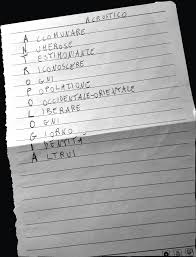 ACROSTICO
ACCOMUNARE
NUMEROSE
TESTIMONIANZE
RICONOSCERE
OGNI
POPOLAZIONE
OCCIDENTALE-ORIENTALE
LIBERARE
OGNI
GIORNO
IDENTITÀ
ALTRUI